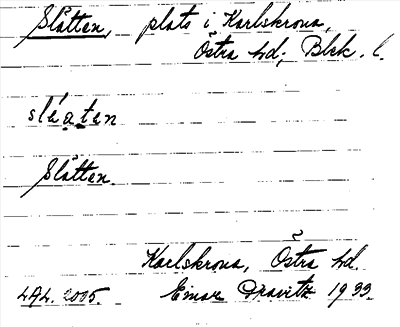 Slätten, plats i Karlskrona,
Östra hd; Blek. l.
Slätten.
Karlskrona, Östra hd.
LAL. 2005. Einar 1933.